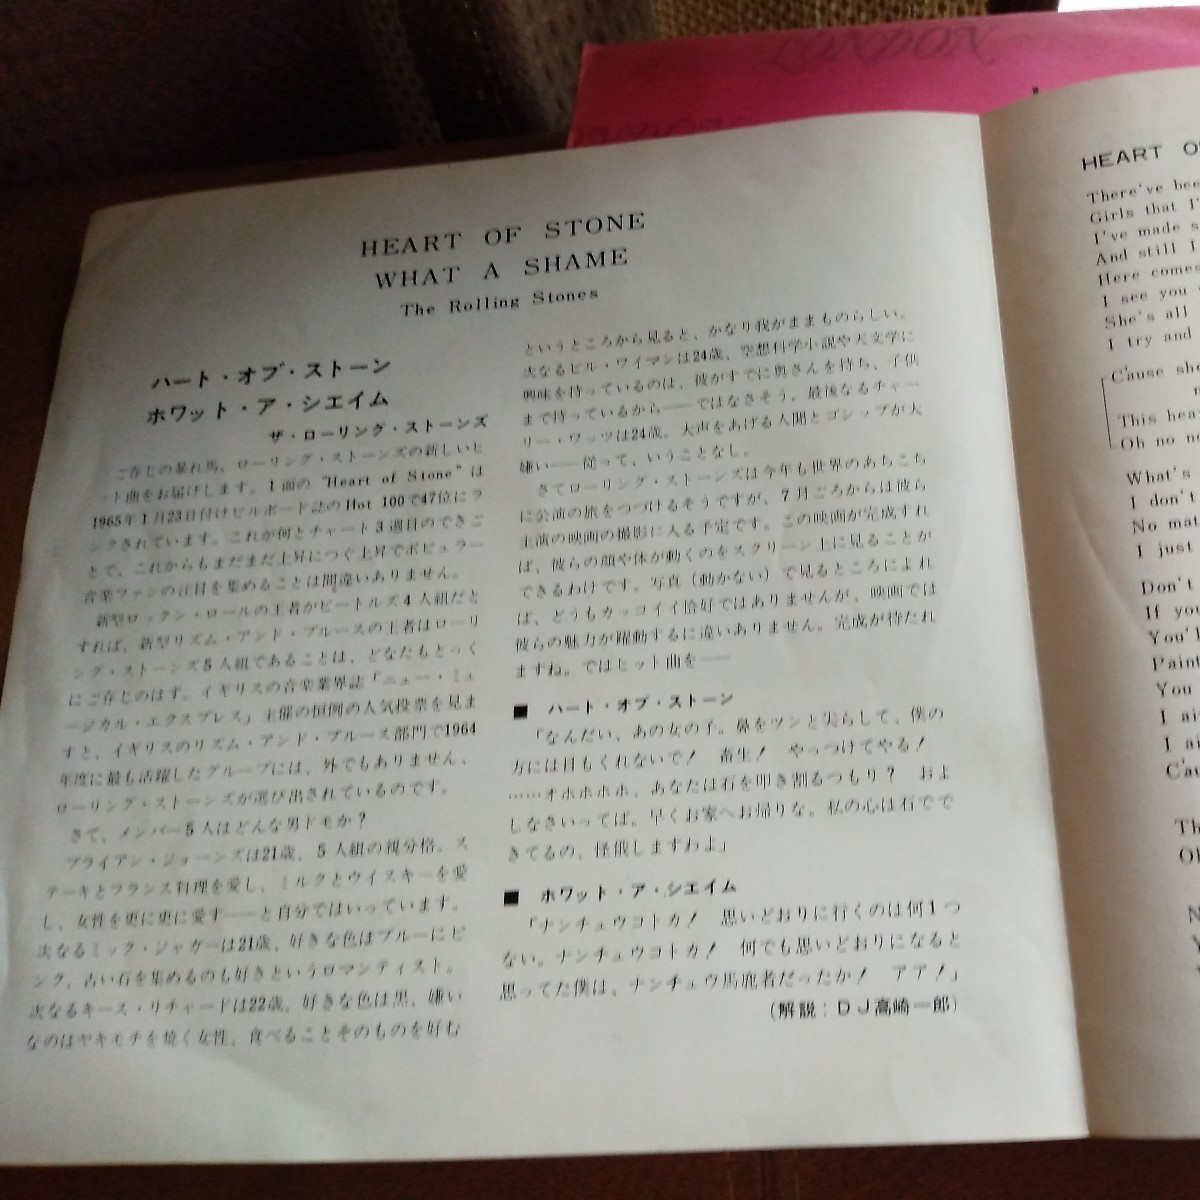 LONDON
HEART OF STONE
WHAT A SHAME
The Rolling Stones
ハート・オブ・ストーン
ホワット・ア・シエイム
ザ・ローリング・ストーンズ
ご存じの暴れ馬、ローリング・ストーンズの新しいヒ
ット曲をお届けします。1面の "Heart of Stone" は
1965年1月23日付けビルボード誌のHot 100で47位にラ
ンクされています。これが何とチャート3週目のできご
とで、これからもまだまだ上昇につぐ上昇でポピュラー
音楽ファンの注目を集めることは間違いありません。
新型ロックン・ロールの王者がビートルズ4人組だと
すれば、新型リズム・アンド・ブルースの王者はローリ
ング・ストーンズ5人組であることは、どなたもとっく
にご存じのはず。イギリスの音楽業界誌「ニュー・ミュ
ージカル・エクスプレス」主催の恒例の人気投票を見ま
すと、イギリスのリズム・アンド・ブルース部門で1964
年度に最も活躍したグループには、外でもありません、
ローリング・ストーンズが選び出されているのです。
さて、メンバー5人はどんな男ドモか?
ブライアン・ジョーンズは21歳、5人組の親分格。ス
テーキとフランス料理を愛し、ミルクとウイスキーを愛
し、女性を更に更に愛す——と自分ではいっています。
次なるミック・ジャガーは21歳、好きな色はブルーにピ
ンク、古い石を集めるのも好きというロマンティスト。
次なるキース・リチャードは22歳、好きな色は黒、嫌い
なのはヤキモチを焼く女性、食べることそのものを好む
というところから見ると、かなり我がままものらしい。
次なるビル・ワイマンは24歳、空想科学小説や天文学に
興味を持っているのは、彼がすでに奥さんを持ち、子供
まで持っているから——ではなさそう。最後なるチャー
リー・ワッツは24歳。大声をあげる人間とゴシップが大
嫌い——従って、いうことなし。
さてローリング・ストーンズは今年も世界のあちこち
に公演の旅をつづけるそうですが、7月ごろからは彼ら
主演の映画の撮影に入る予定です。この映画が完成すれ
ば、彼らの顔や体が動くのをスクリーン上に見ることが
できるわけです。写真(動かない)で見るところによれ
ば、どうもカッコイイ恰好ではありませんが、映画では
彼らの魅力が躍動するに違いありません。完成が待たれ
ますね。ではヒット曲を——
■ ハート・オブ・ストーン
「なんだい、あの女の子。鼻をツンと尖らして、僕の
方には目もくれないで! 畜生! やっつけてやる!
……オホホホホ、あなたは石を叩き割るつもり? およ
しなさいってば。早くお家へお帰りな。私の心は石でで
きてるの、怪俄しますわよ」
■ ホワット・ア・シエイム
「ナンチュウコトカ! 思いどおりに行くのは何1つ
ない。ナンチュウコトカ! 何でも思いどおりになると
思ってた僕は、ナンチュウ馬鹿者だったか! アア!」
(解説:DJ高崎一郎)
HEART
There've
Girls that
I've made
And still I
Here comes
I see you
She's all
I try and
C'ause
This
Oh no
What's
I don't
No
I just
Don't
If
You
I
I